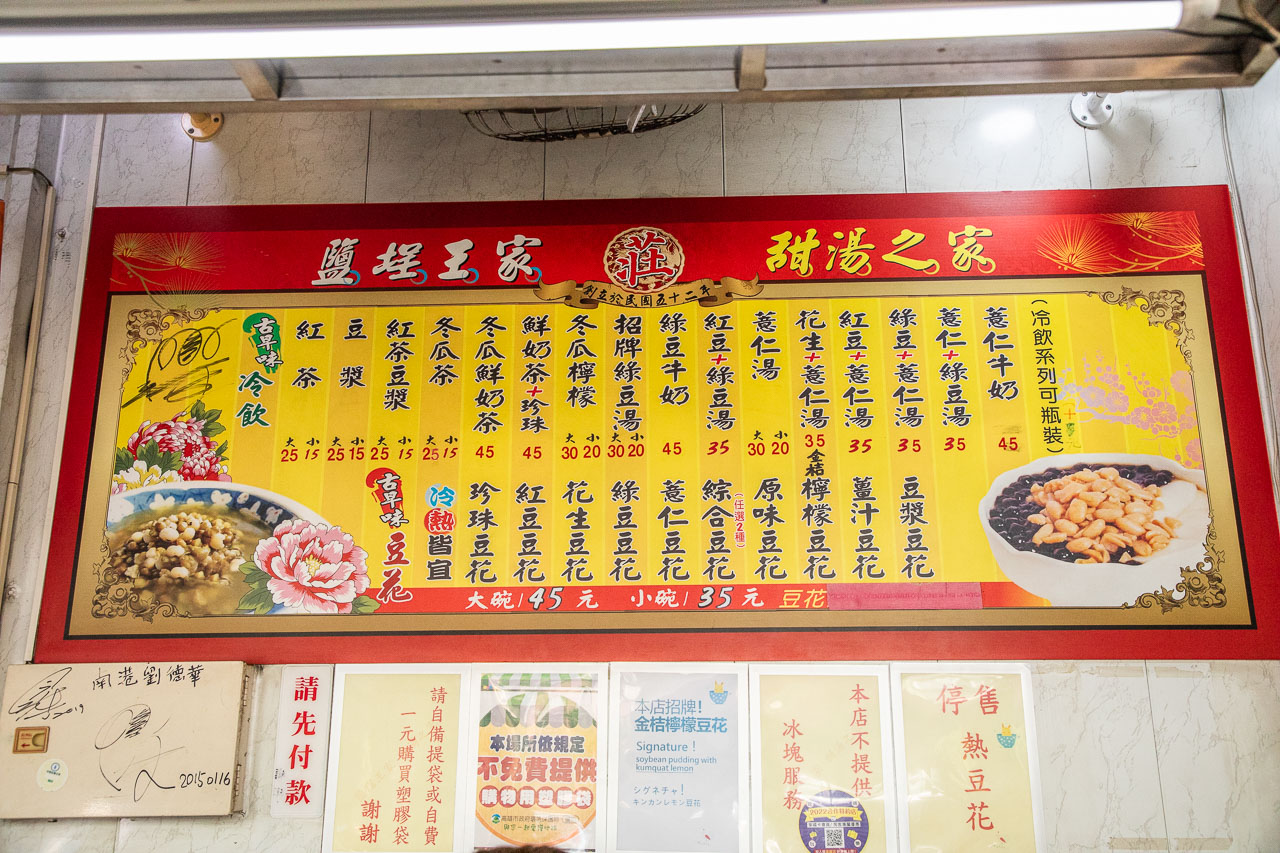 鹽埕王家
莊
甜湯之家
創立於民國五十二年
古早味
冷飲
紅茶 大25 小15
豆漿 大25 小15
紅茶豆漿 大25 小15
冬瓜茶 大25 小15
冬瓜鮮奶茶 45
鮮奶茶+珍珠 45
冬瓜檸檬 大30 小20
招牌綠豆湯 大30 小20
綠豆牛奶 45
紅豆+綠豆湯 35
薏仁湯 大30 小20
花生+薏仁湯 35
紅豆+薏仁湯 35
綠豆+薏仁湯 35
薏仁+綠豆湯 35
薏仁牛奶 45
(冷飲系列可瓶裝)
古早味
豆花
冷熱皆宜
珍珠豆花
紅豆豆花
花生豆花
綠豆豆花
薏仁豆花
綜合豆花
(任選2種)
原味豆花
金桔檸檬豆花
薑汁豆花
豆漿豆花
大碗/45元 小碗/35元 豆花
南港劉德華
2019
20150116
請先付款
請自備提袋或自費
一元購買塑膠袋
謝謝
本場所依規定
不免費提供
購物用塑膠袋
本店招牌!
金桔檸檬豆花
Signature !
soybean pudding with
kumquat lemon
シグネチャ!
キンカンレモン豆花
本店不提供
冰塊服務
2022
停售
熱豆花